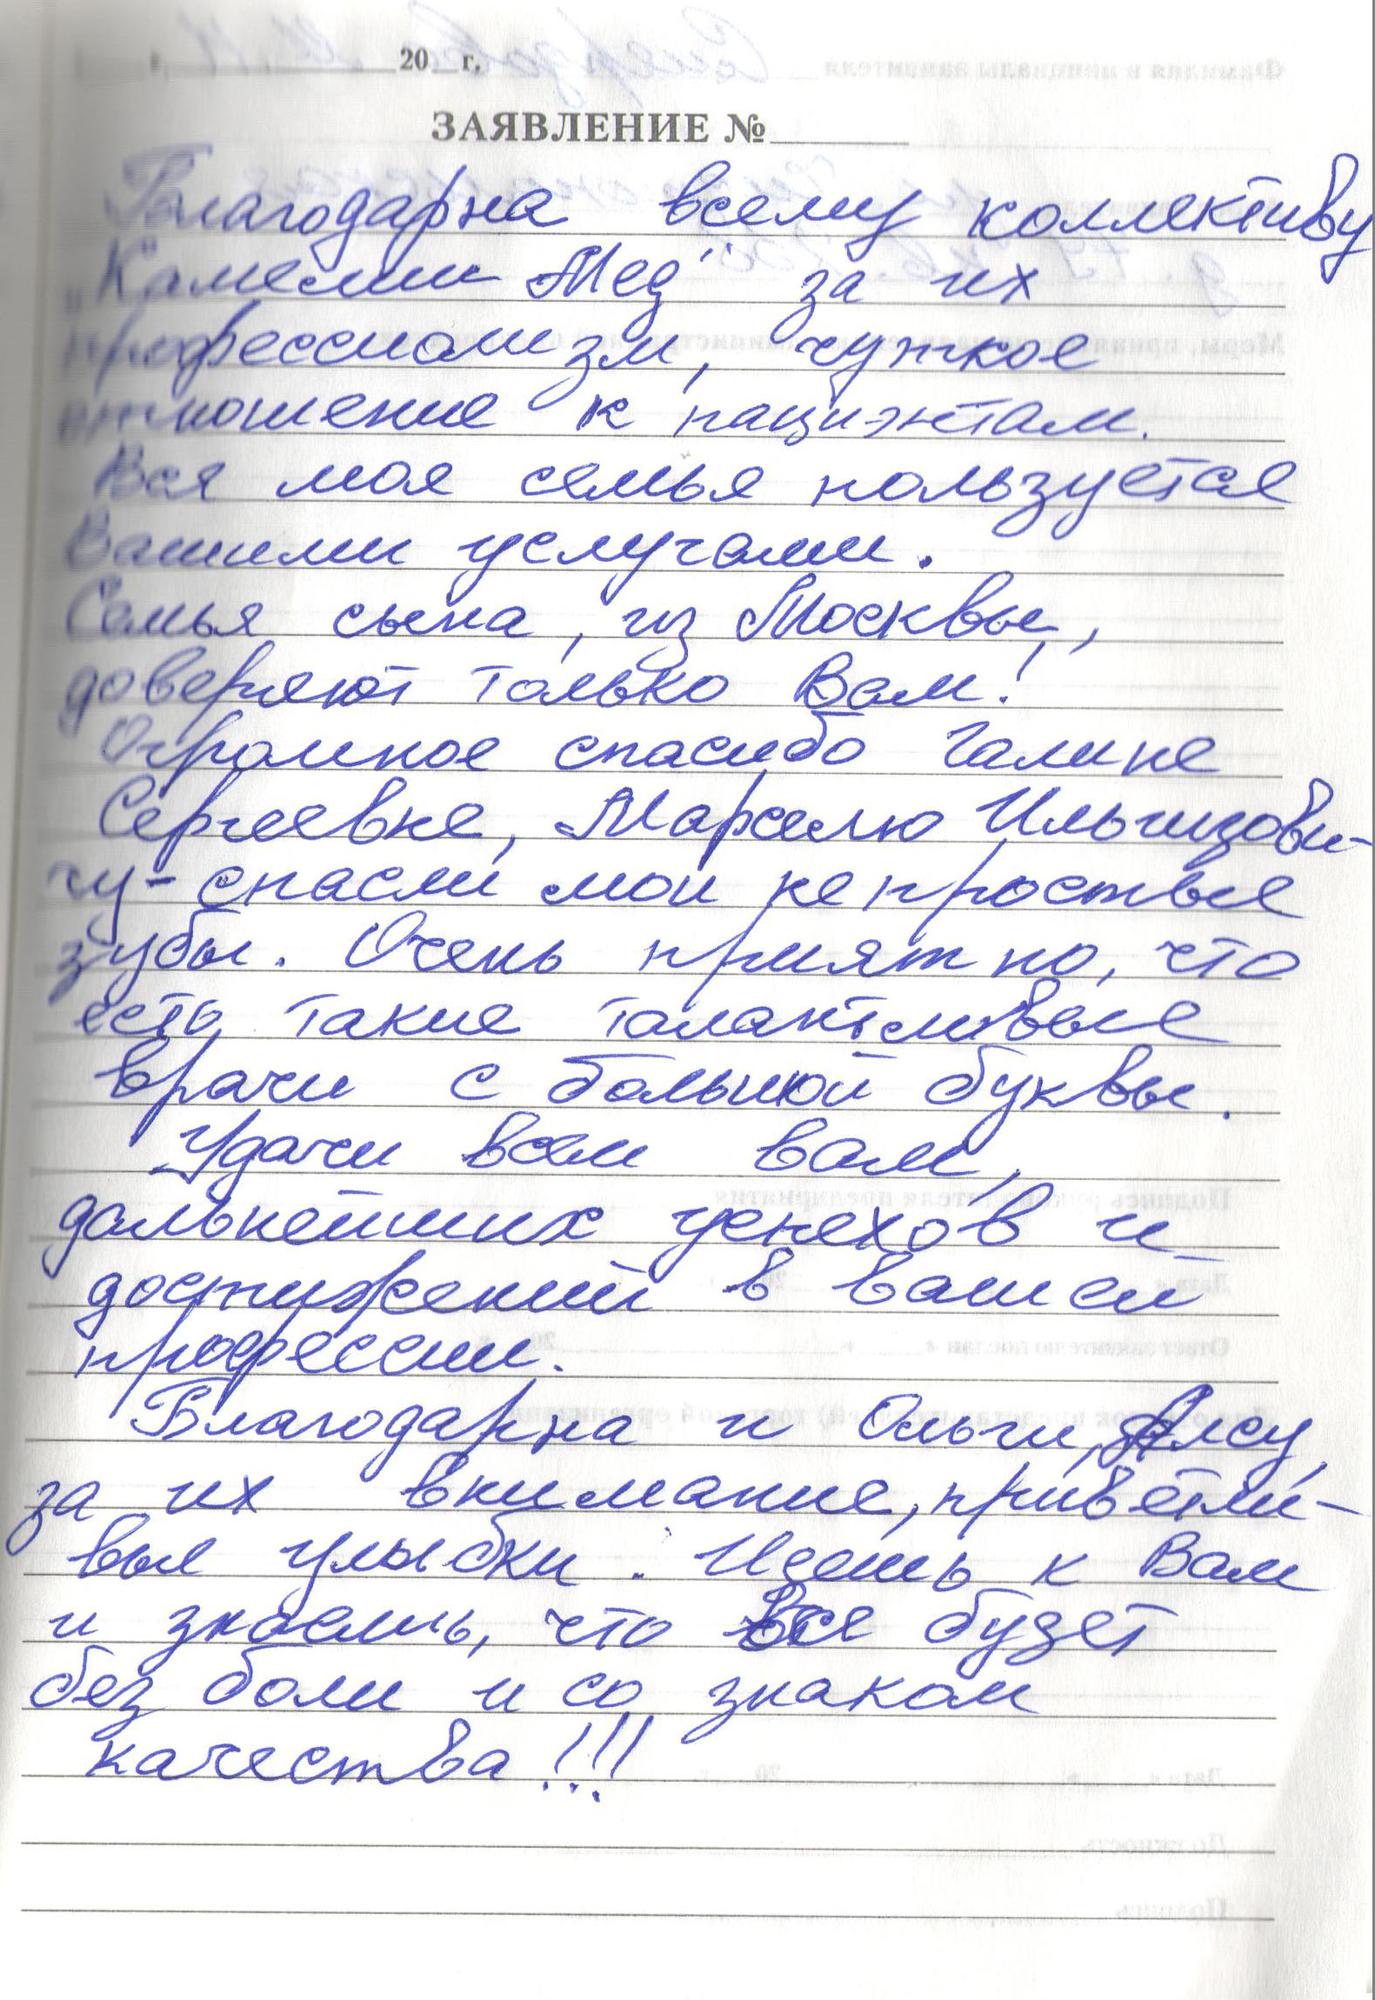 20 г.
ЗАЯВЛЕНИЕ №
Благодарна всему коллективу
"Камелии Мед" за их
профессионализм, чуткое
отношение к пациэнтам.
Вся моя семья пользуется
Вашими услугами.
Семья сына, из Москвы,
доверяют только Вам!
Огромное спасибо Галине
Сергеевне, Марселю Ильгизови-
чу - спасли мои непростые
зубы. Очень приятно, что
есть такие талантливые
врачи с большой буквы.
Удачи всем вам,
дальнейших успехов и
достижений в вашей
профессии.
Благодарна и Ольги, Алсу,
за их внимание, приветли-
вые улыбки. Идешь к Вам
и знаешь, что все будет
без боли и со знаком
качества!!!